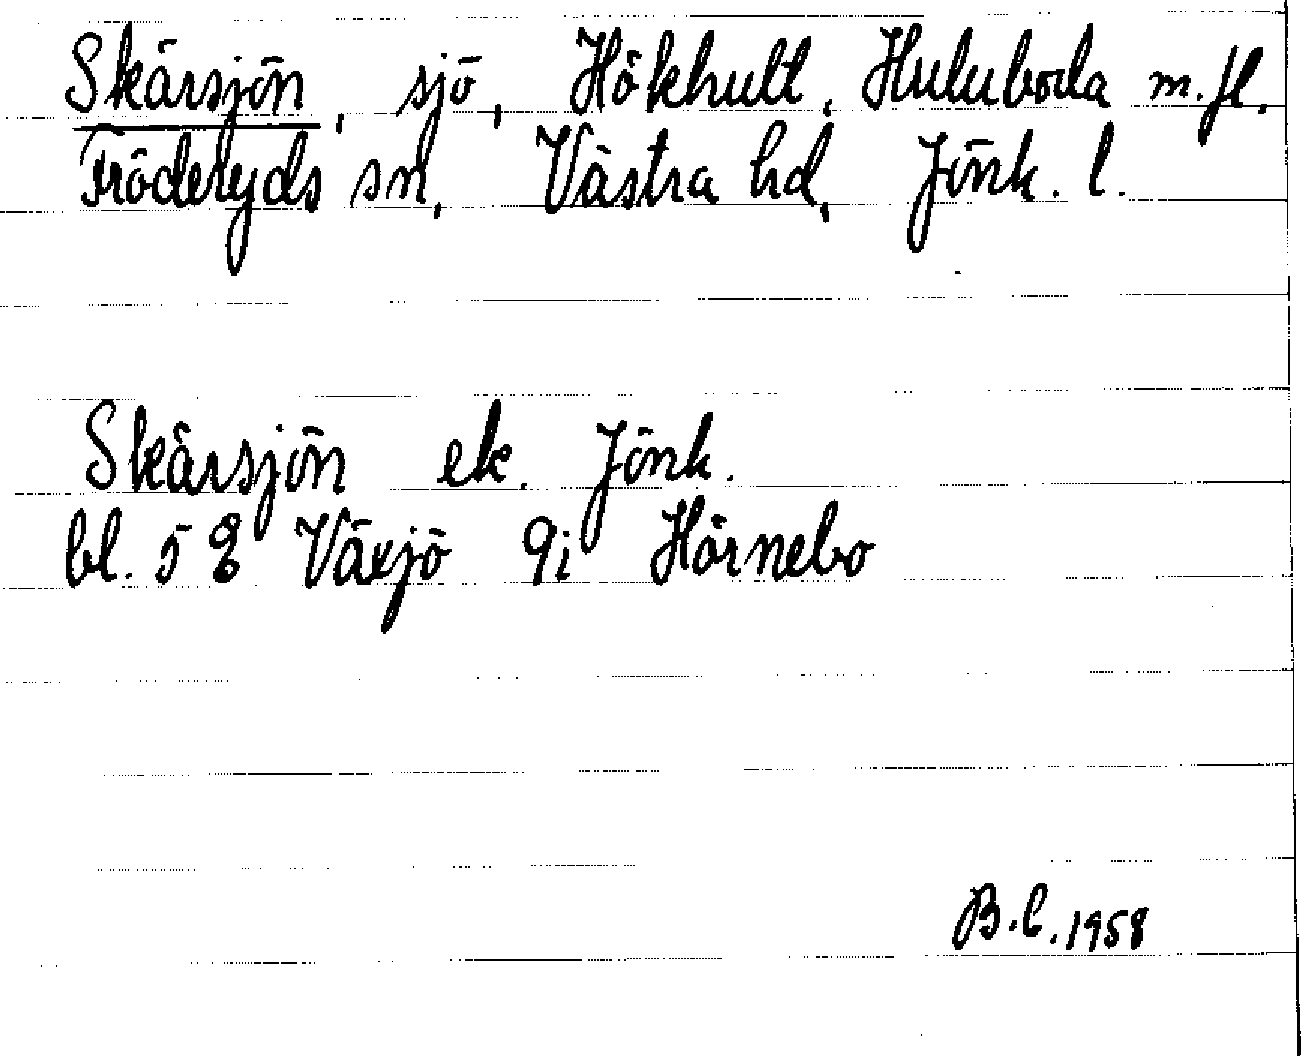 Skärsjön, sjö, Hökhult, Huluboda m.fl.
Fröderyds sn, Västra hd, Jönk. l.
Skärsjön ek. Jönk.
bl. 5 E Växjö 9i Hörnebo
B.L. 1958